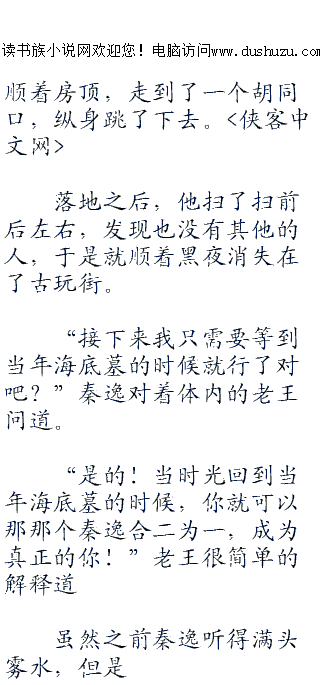 读书族小说网欢迎您！电脑访问www.dushuzu.com
顺着房顶，走到了一个胡同
口，纵身跳了下去。<侠客中
文网>
落地之后，他扫了扫前
后左右，发现也没有其他的
人，于是就顺着黑夜消失在
了古玩街。
“接下来我只需要等到
当年海底墓的时候就行了对
吧？”秦逸对着体内的老王
问道。
“是的！当时光回到当
年海底墓的时候，你就可以
那那个秦逸合二为一，成为
真正的你！”老王很简单的
解释道
虽然之前秦逸听得满头
雾水，但是